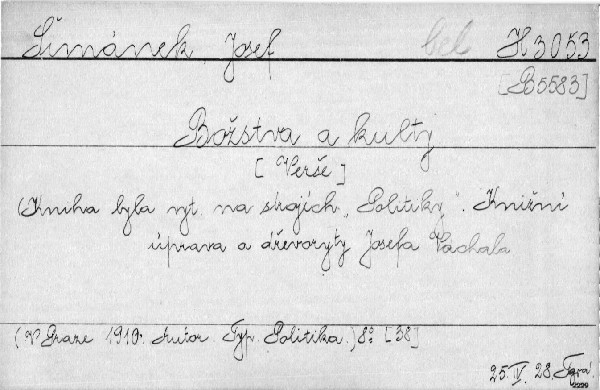 Šimánek Josef bel H 3053
[B5583]
Božstva a kulty
[Verše]
(Kniha byla vyt. na strojích „Politiky". Knižní
úprava a dřevoryty Josefa Váchala
(V Praze 1910. Autor. Typ. Politika.) 8° [38]
25. IV. 28.